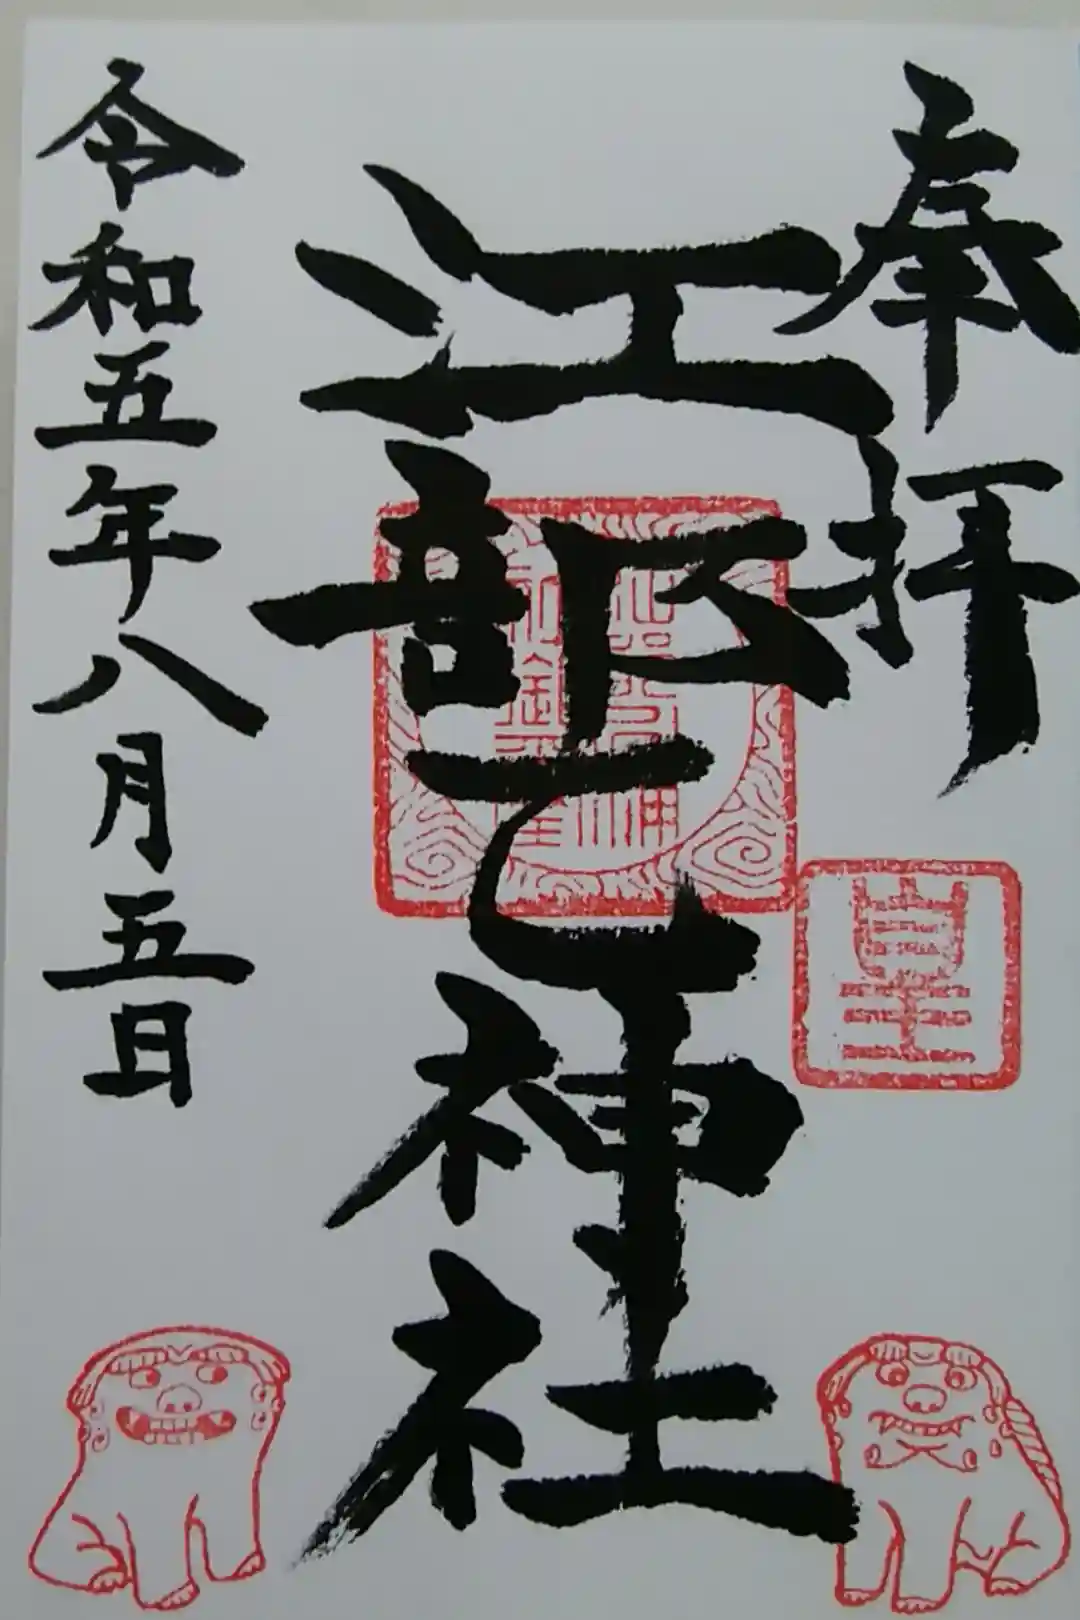 奉拝
江部乙神社
令和五年八月五日